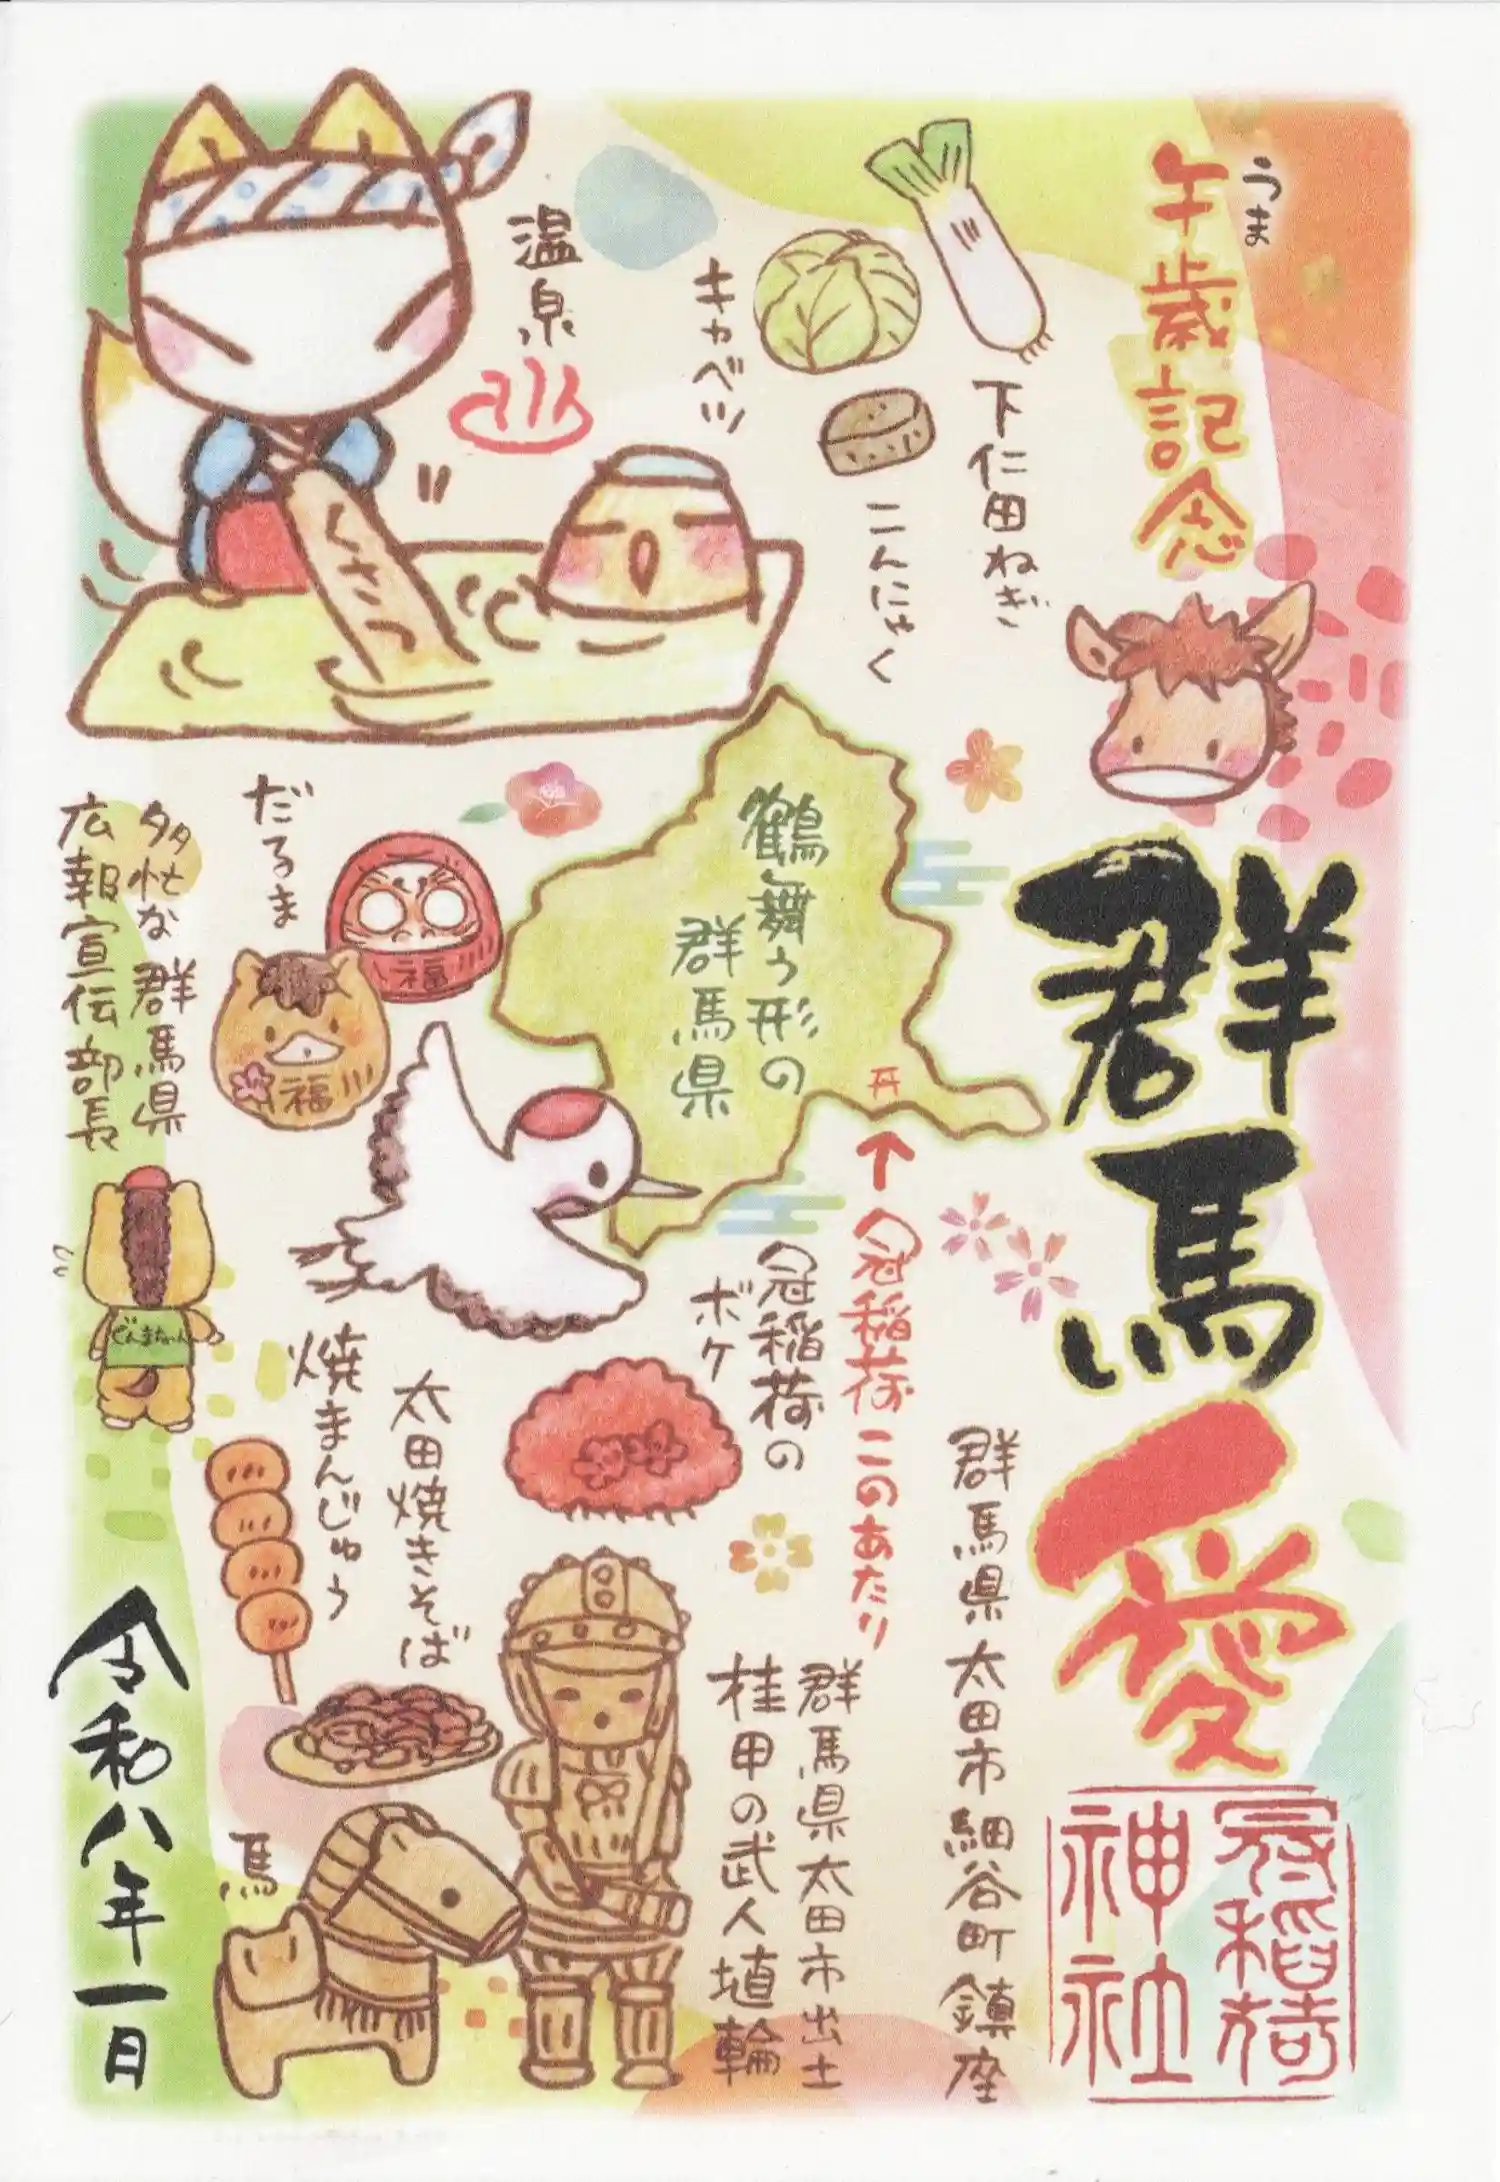 午歳記念
うま
群馬愛
冠稲荷
神社
下仁田ねぎ
キャベツ
こんにゃく
温泉
くさつ
鶴舞う形の
群馬県
だるま
福
福
多忙な群馬県
広報宣伝部長
ぐんまちゃん
冠稲荷このあたり
冠稲荷の
ボケ
群馬県太田市細谷町鎮座
太田焼きそば
焼まんじゅう
群馬県太田市出土
桂甲の武人埴輪
馬
令和八年一月